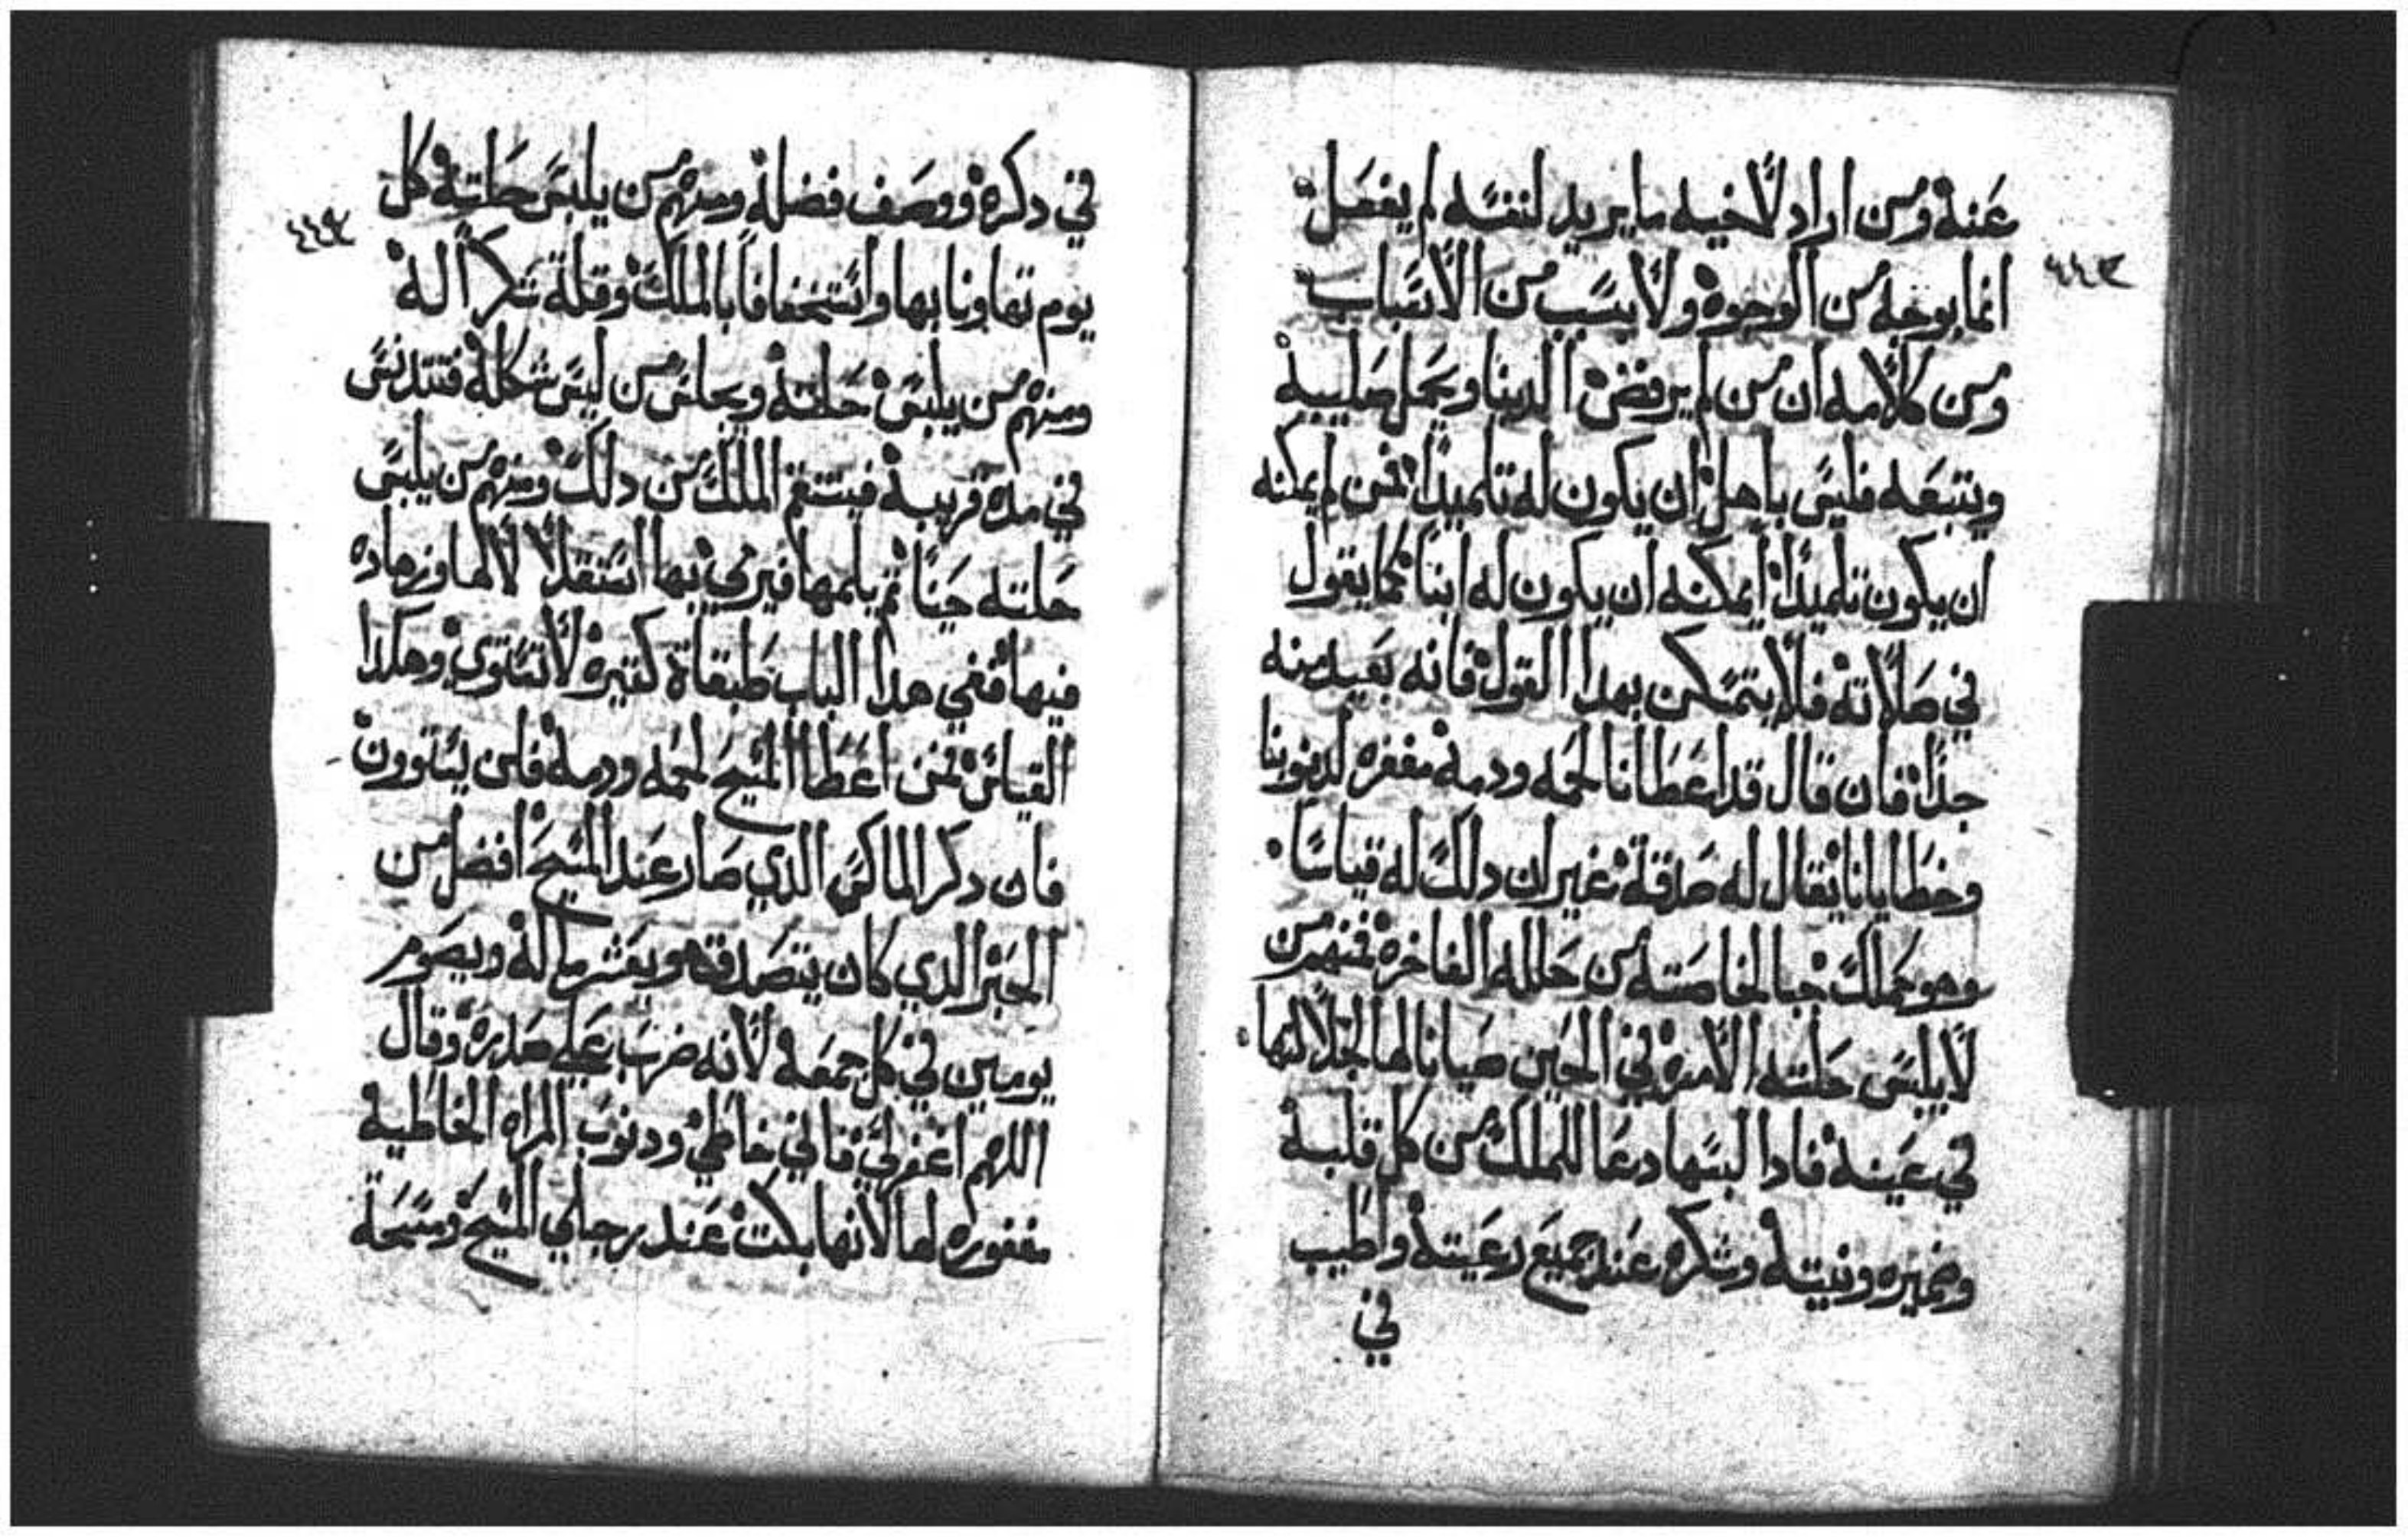 عنه ومن اراد لاخيه ما يريد لنفسه لم يفعل
٤٤٣
انما بوجه من الوجوه ولا بسبب من الاسباب
ومن كلامه ان من لم يرفض الدنيا ويحمل صليبه
ويتبعه فليس باهل ان يكون له تلميدا فمن لم يمكنه
ان يكون تلميدا ايمكنه ان يكون له ابنا كما يقول
في صلاته فلا يتمسكن بهدا القول فانه بعيد منه
جدا فان قال قد اعطانا لحمه ودمه مغفره لدنوبنا
وخطايانا يقال له صدقة غير ان دلك له قياسا
وهو كملك حبا لخاصته من حلله الفاخره فمنهم من
لا يلبس حلته الامره في الحين صيانا لها لجلالتها
في عينه فادا لبسها دعا للملك من كل قلبه
وضميره ونيته وشكره عند جميع رعيته واطيب
في
في دكره ووصف فضله ومنهم من يلبس حلته كل
٤٤٤
يوم تهاونا بها واستخفافا بالملك وقلة شكرا له
ومنهم من يلبس حلته ويجلس من ليس شكله فتتدنس
في مده قريبه فيستنغ الملك من دلك ومنهم من يلبس
حلته حينا ثم يلمها فيرمي بها استقلالا لها وزهاده
فيها ففي هدا الباب طبقاة كتيره لا تتساوي وهكدا
القياس فمن اعطا المسيح لحمه ودمه فلن يستوون
فان دكر الماكس الدي صار عند المسيح افضل من
الحبر الدي كان يتصدق هو ويعشر ماله ويصوم
يومين في كل جمعه لانه ضرب علي صدره وقال
اللهم اغفر لي فاني خاطي ودنوب المراه الخاطيه
مغفوره لها لانها بكت عند رجلي المسيح ومسحة